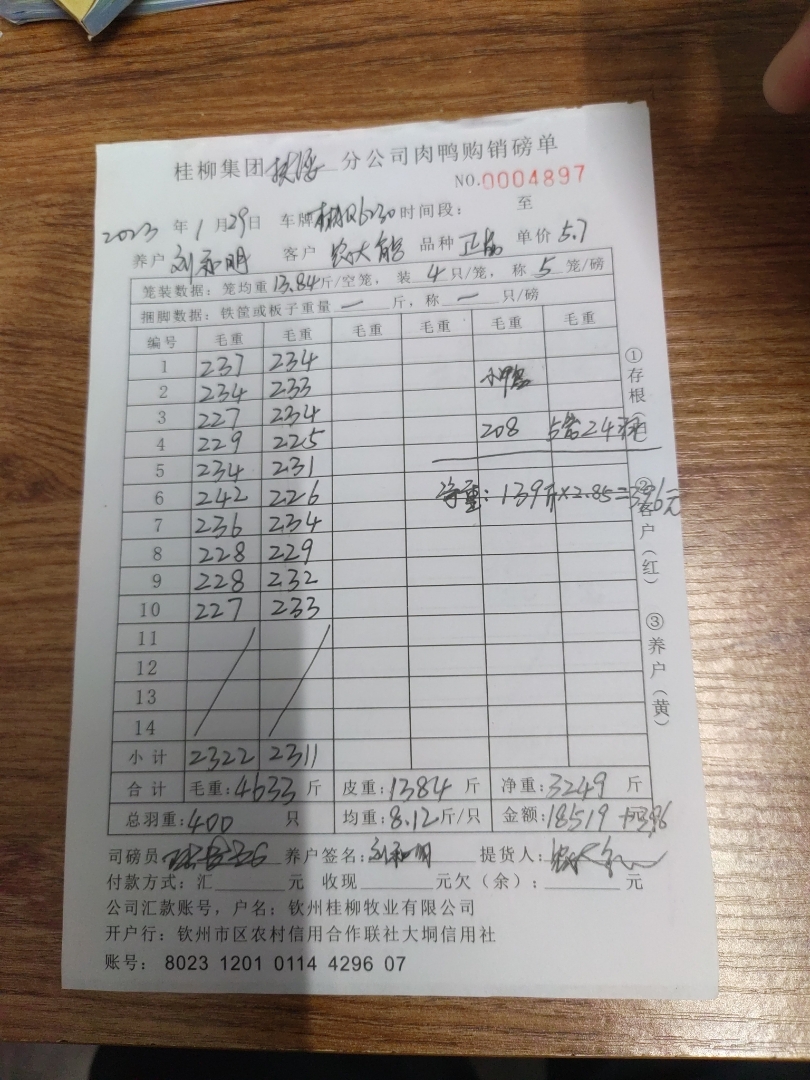 桂柳集团 分公司肉鸭购销磅单
NO.0004897
2023 年 1 月 29 日 车牌 Q6230 时间段： 至
养户 刘和明 客户 农大能 品种 正品 单价 5.7
笼装数据：笼均重 13.84 斤/空笼， 装 4 只/笼， 称 5 笼/磅
捆脚数据：铁筐或板子重量 一 斤，称 一 只/磅
编号 毛重 毛重 毛重 毛重 毛重 毛重
1 237 234
2 234 233 小鸭
3 227 234
4 229 225 208 5笼24只
5 234 231
6 242 226 净重：139斤×2.85=396元
7 236 234
8 228 229
9 228 232
10 227 233
11
12
13
14
小计 2322 2311
合计 毛重：4633 斤 皮重：1384 斤 净重：3249 斤
总羽重：400 只 均重：8.12斤/只 金额：18519 +396
司磅员 养户签名：刘和明 提货人：
付款方式：汇 元 收现 元欠（余）： 元
公司汇款账号，户名：钦州桂柳牧业有限公司
开户行：钦州市区农村信用合作联社大垌信用社
账号： 8023 1201 0114 4296 07
①存根（白）
②客户（红）
③养户（黄）